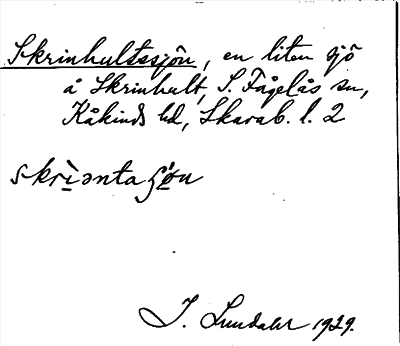 Skrinhultssjön, en liten sjö
å Skrinhult, S. Fågelås sn,
Kåkinds hd, Skarab. l. 2
J. Lundahl 1929.